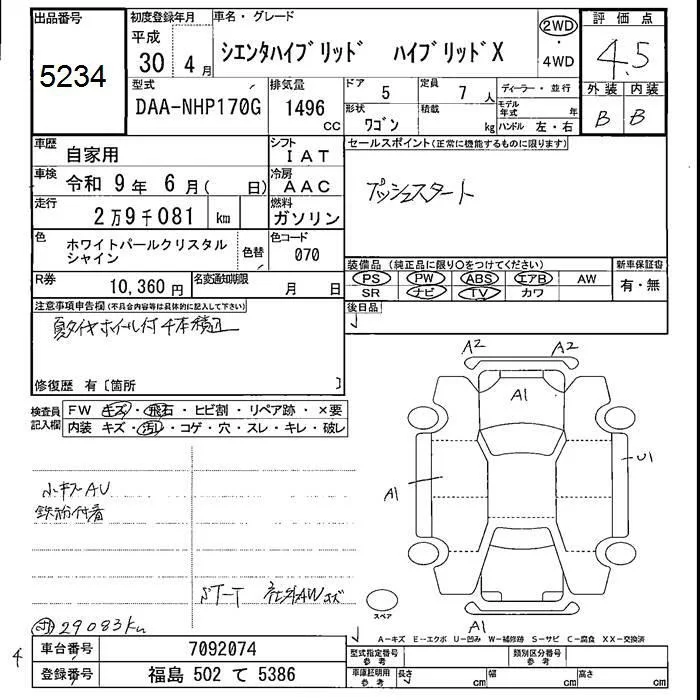 出品番号
5234
初度登録年月
平成
30 4月
車名・グレード
シエンタハイブリッド ハイブリッドX
2WD
・
4WD
評価点
4.5
外装 内装
B B
型式
DAA-NHP170G
排気量
1496
CC
ドア 5
定員 7人
形状
ワゴン
積載
kg
ディーラー・並行
モデル年式 年
ハンドル 左・右
車歴
自家用
シフト
IAT
車検
令和 9年 6月( 日)
冷房
AAC
走行
2万9千081 km
燃料
ガソリン
色
ホワイトパールクリスタル
シャイン
色替
色コード
070
R券
10,360円
名変通知期限
月 日
セールスポイント(正常に機能するものに限ります)
プッシュスタート
装備品(純正品に限り○をつけてください)
PS PW ABS エアB AW
SR ナビ TV カワ
新車保証書
有・無
後日品
注意事項申告欄(不具合内容等は具体的に記入して下さい)
夏タイヤホイール付4本積込
修復歴 有〔箇所 〕
検査員
記入欄
FW キズ・飛石・ヒビ割・リペア跡・×要
内装 キズ・汚レ・コゲ・穴・スレ・キレ・破レ
小キズAU
鉄粉付着
ST-T 社外AWキズ
29083Km
A2 A2
A1
A1
U1
A1
スペア
A-キズ E-エクボ U-凹み W-補修跡 S-サビ C-腐食 XX-交換済
車台番号
7092074
登録番号
福島 502 て 5386
型式指定番号
参考
類別区分番号
参考
車庫証明用
参考
長さ cm
幅 cm
高さ cm